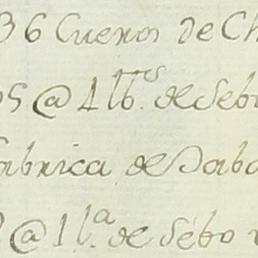 36 Cueros de Ch
05 @ 1 lbs. de Sebo
fabrica de Jabo
@ 1 l.a de Sebo